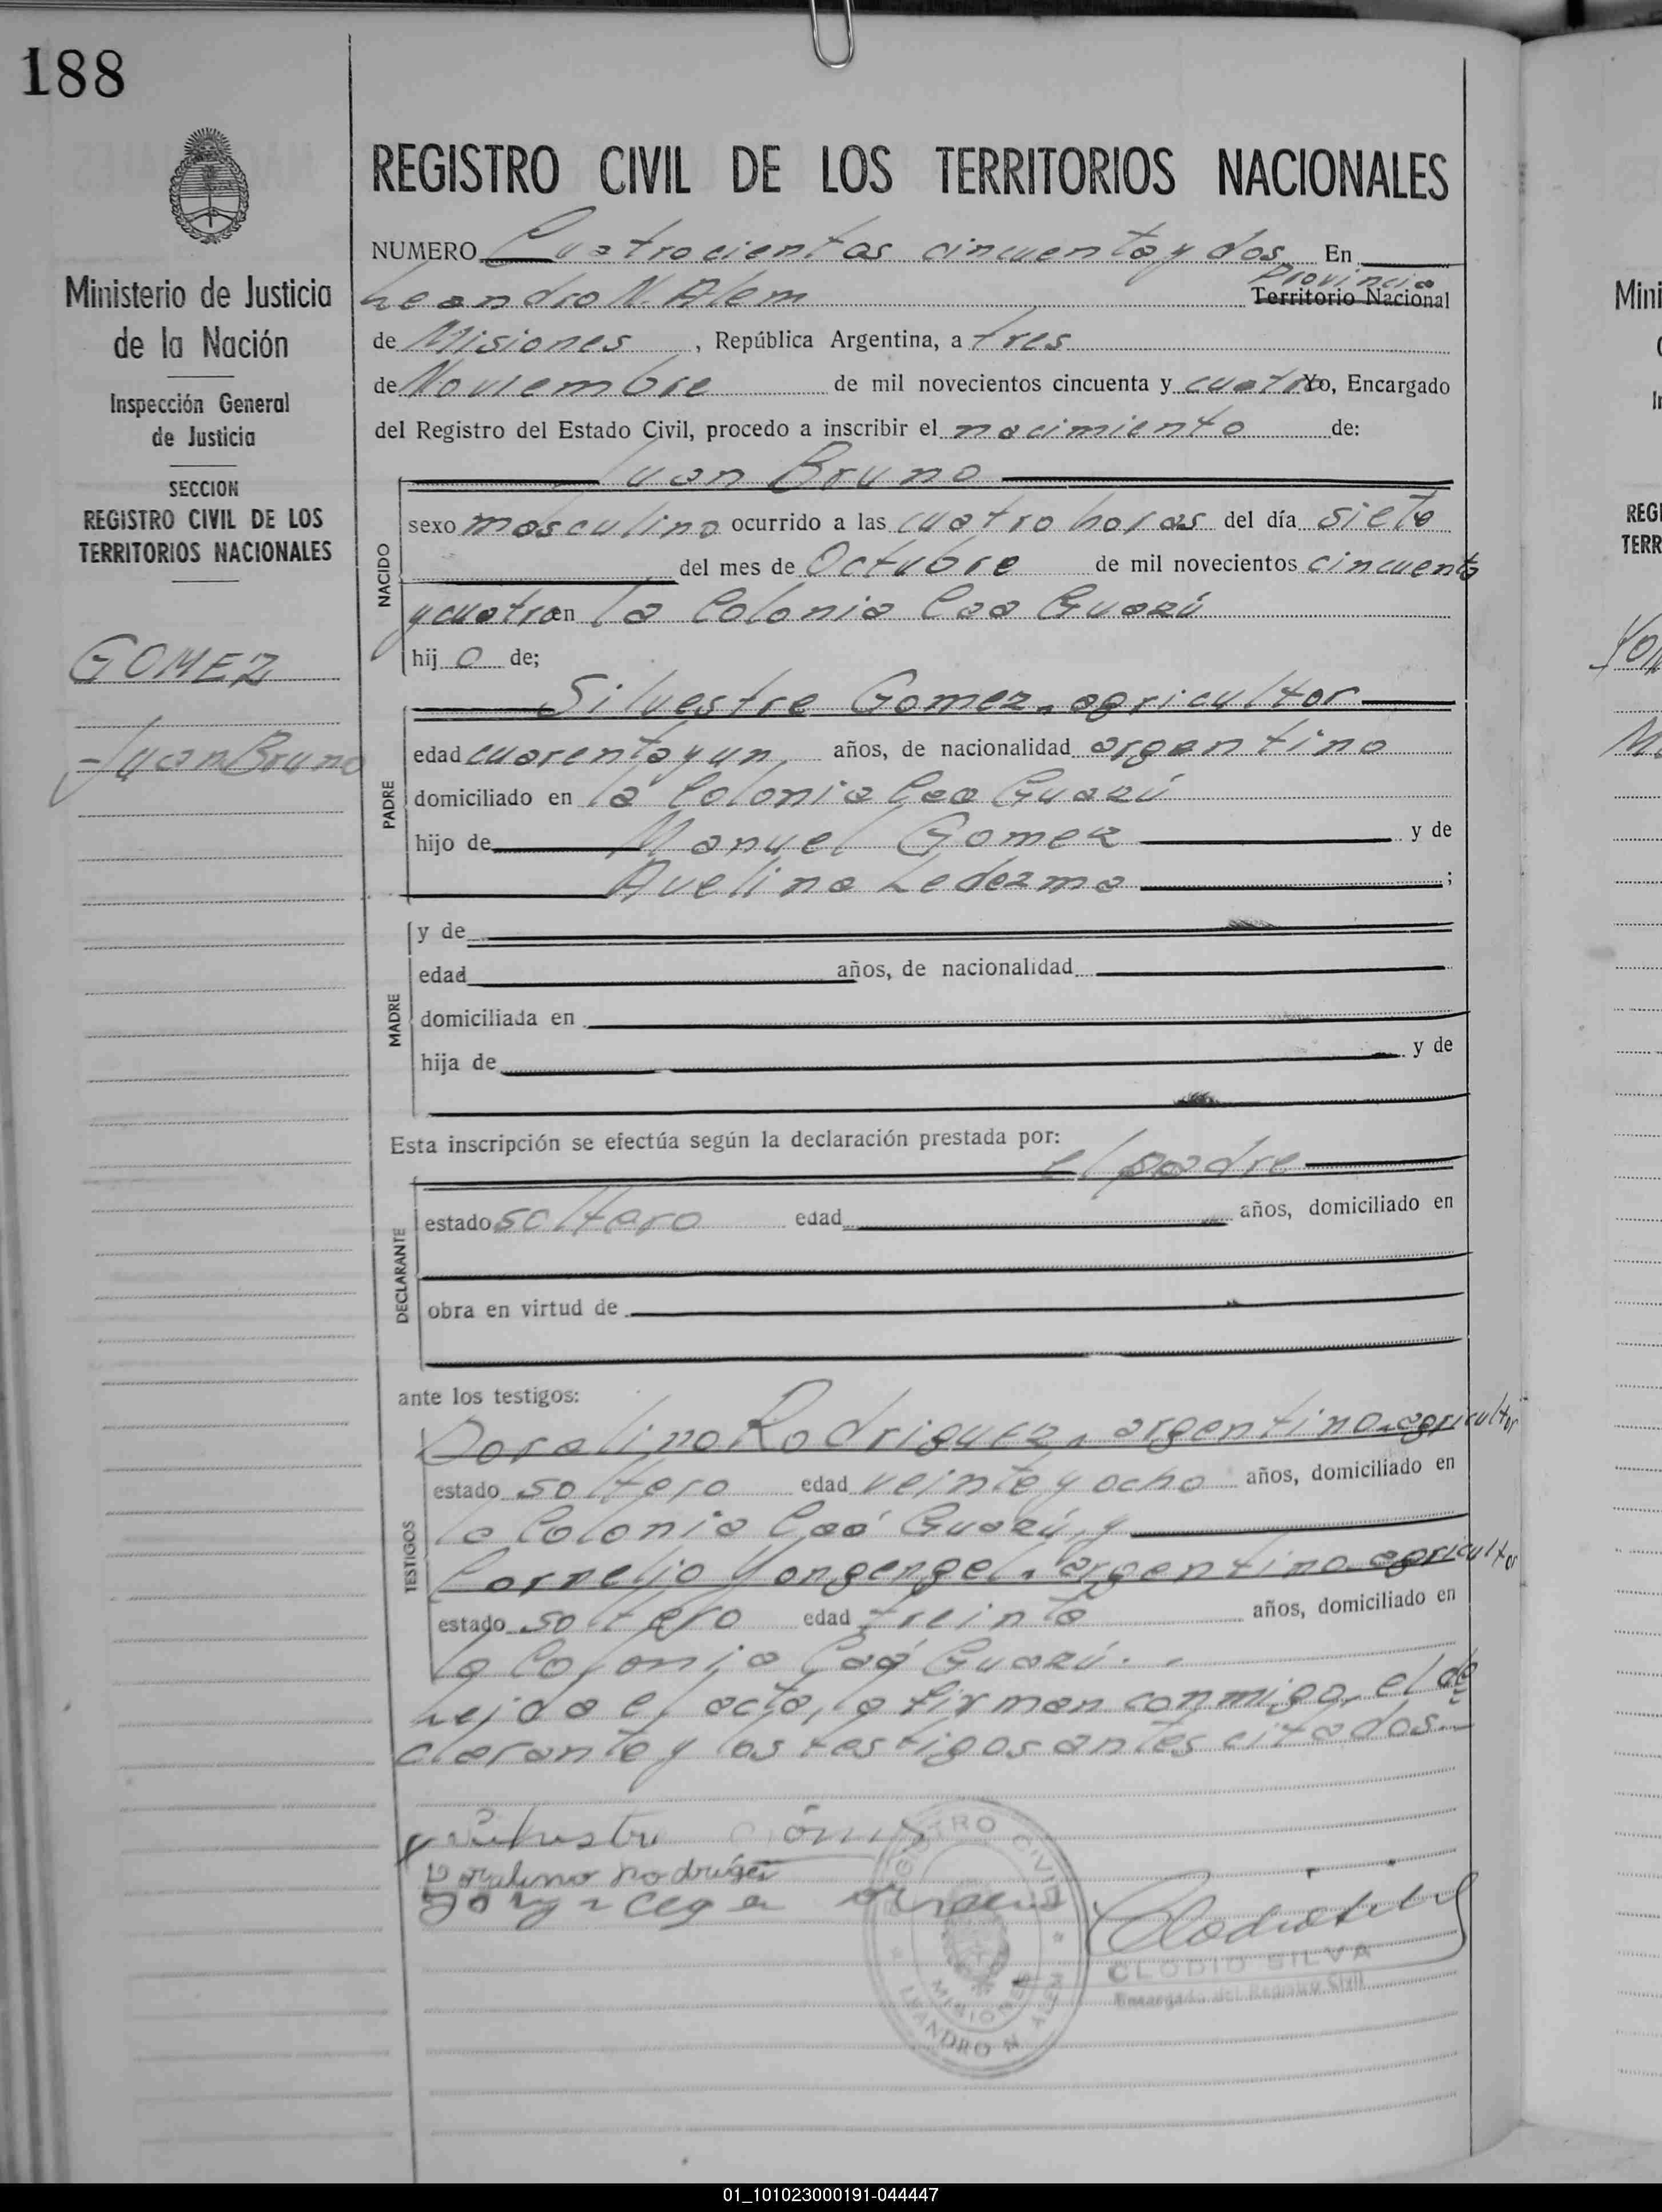 188
Ministerio de Justicia
de la Nación
Inspección General
de Justicia
SECCION
REGISTRO CIVIL DE LOS
TERRITORIOS NACIONALES
GOMEZ
Juan Bruno
REGISTRO CIVIL DE LOS TERRITORIOS NACIONALES
NUMERO Cuatrocientos cincuenta y dos En
Provincia
Leandro N. Alem Territorio Nacional
de Misiones, República Argentina, a tres
de Noviembre de mil novecientos cincuenta y cuatro Yo, Encargado
del Registro del Estado Civil, procedo a inscribir el nacimiento de:
Juan Bruno
NACIDO
sexo masculino ocurrido a las cuatro horas del día siete
del mes de Octubre de mil novecientos cincuenta
y cuatro en la Colonia Caa Guazú
hijo de;
PADRE
Silvestre Gomez. agricultor
edad cuarenta y un años, de nacionalidad argentino
domiciliado en la Colonia Caa Guazú
hijo de Manuel Gomez y de
Avelina Ledezma ;
MADRE
y de
edad años, de nacionalidad
domiciliada en
hija de y de
Esta inscripción se efectúa según la declaración prestada por:
el padre
DECLARANTE
estado soltero edad años, domiciliado en
obra en virtud de
ante los testigos:
TESTIGOS
Doralino Rodriguez. argentino. agricultor
estado soltero edad veinte y ocho años, domiciliado en
la Colonia Caá Guazú, y
Cornelio argentino. agricultor
estado soltero edad treinta años, domiciliado en
la Colonia Caá Guazú.
Leida el acta, la firman conmigo, el de
clarante y los testigos antes citados.
Doralino Rodriguez
REGISTRO CIVIL
MISIONES
LEANDRO N. ALEM
CLODIO SILVA
Encargado del Registro Civil
Mini
REGI
TERR
01_101023000191-044447